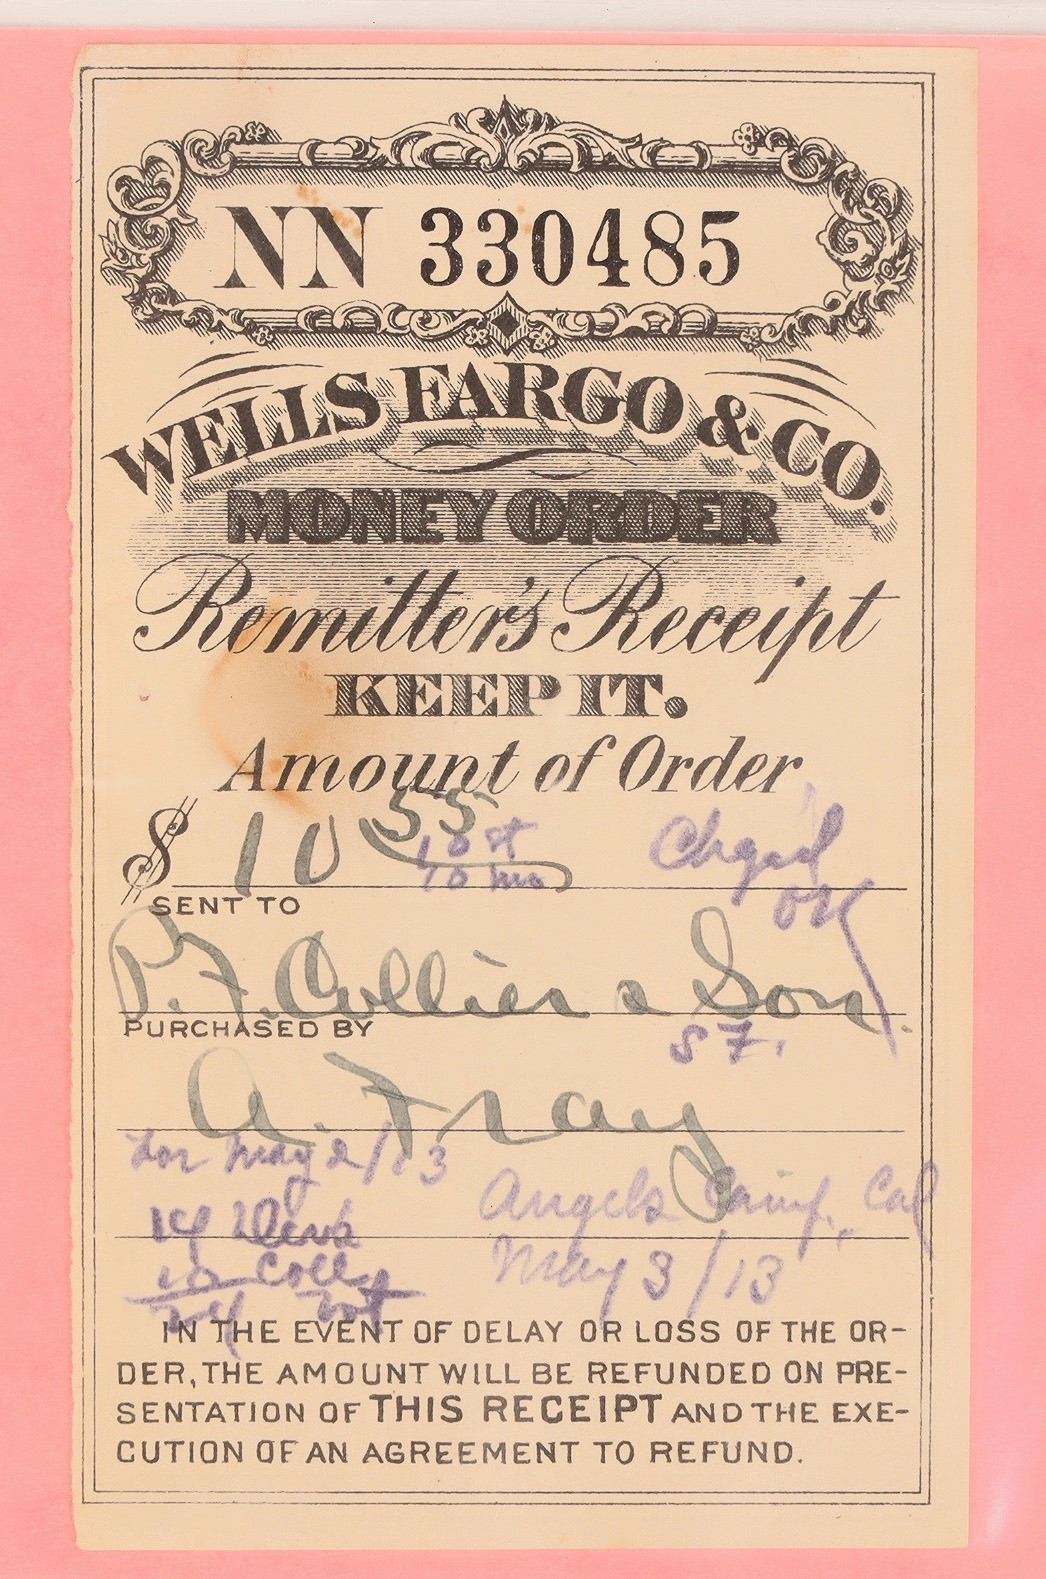 NN 330485
WELLS FARGO & CO.
MONEY ORDER
Remitter's Receipt
KEEP IT.
Amount of Order
$ 10 55
10 st
10 mo
Chgd
OK
SENT TO
P. F. Collier & Son.
PURCHASED BY
S F.
A. Fray
for May 2/13
Angels Camp, Cal
14
May 3/13
10 Coll
24 tot
IN THE EVENT OF DELAY OR LOSS OF THE OR-
DER, THE AMOUNT WILL BE REFUNDED ON PRE-
SENTATION OF THIS RECEIPT AND THE EXE-
CUTION OF AN AGREEMENT TO REFUND.